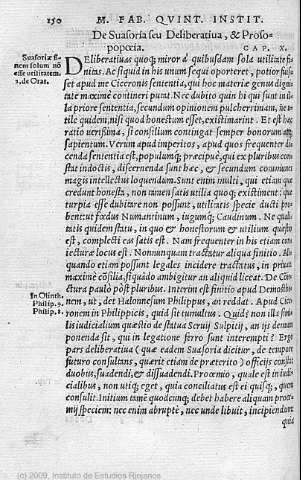 150 M. FAB. QVINT. INSTIT.
De Suasoria seu Deliberatiua, & Proso-
popœia. CAP. X.
Suasoriæ fi-
nem solum nō
esse vtilitatem
2. de Orat.
DEliberatiuas quoq; miror à quibusdam sola vtilitate fi-
nitas. Ac si quid in his vnum sequi oporteret, potior fuis-
set apud me Ciceronis sententia, qui hoc materiæ genus dign
tate maximè contineri putat. Nec dubito quin hi qui sunt in il-
la priore sententia, secundum opinionem pulcherrimam, ne v-
tile quidem, nisi quod honestum esset, existimarint. Et est hæc
ratio verissima, si consilium contingat semper bonorum atq;
sapientum. Verum apud imperitos, apud quos frequenter di-
cenda sententia est, populumq; præcipuè, qui ex pluribus con-
stat indoctis, discernenda sunt hæc, & secundum communes
magis intellectus loquendum. Sunt enim multi, qui etiam quæ
credunt honesta, non tamen satis vtilia quoq; existiment: quæ
turpia esse dubitare non possunt, vtilitatis specie ducti pro-
bent: vt fœdus Numantinum, iugumq; Caudinum. Ne quali-
tatis quidem statu, in quo & honestorum & vtilium quæstio
est, complecti eas satis est. Nam frequenter in his etiam coni-
ecturæ locus est. Nonnunquam tractatur aliqua finitio. Ali-
quando etiam possunt legales incidere tractatus, in priuata
maximè cōsilia, si quando ambigetur an aliquid liceat. De Con-
iectura paulò pòst pluribus. Interim est finitio apud Demosthe-
In Olinth.
Philip. 7.
Philip. 2.
nem, vt, det Halonnesum Philippus, an reddat. Apud Cice-
ronem in Philippicis, quid sit tumultus. Quid? non illa simi-
lis iudicialium quæstio de statua Seruij Sulpitij, an ijs demum
ponenda sit, qui in legatione ferro sunt interempti? Ergo
pars deliberatiua (quæ eadem Suasoria dicitur, de tempore
futuro consultans, quærit etiam de præterito) officijs constat
duobus, suadendi, & dissuadendi. Proœmio, quale est in iudi-
cialibus, non vtiq; eget, quia conciliatus est ei quisq;, quem
consulit. Initium tamē quodcunq; debet habere aliquam proœ-
mij speciem: nec enim abruptè, nec vnde libuit, incipiendum:
quia
(c) 2009, Instituto de Estudios Riojanos